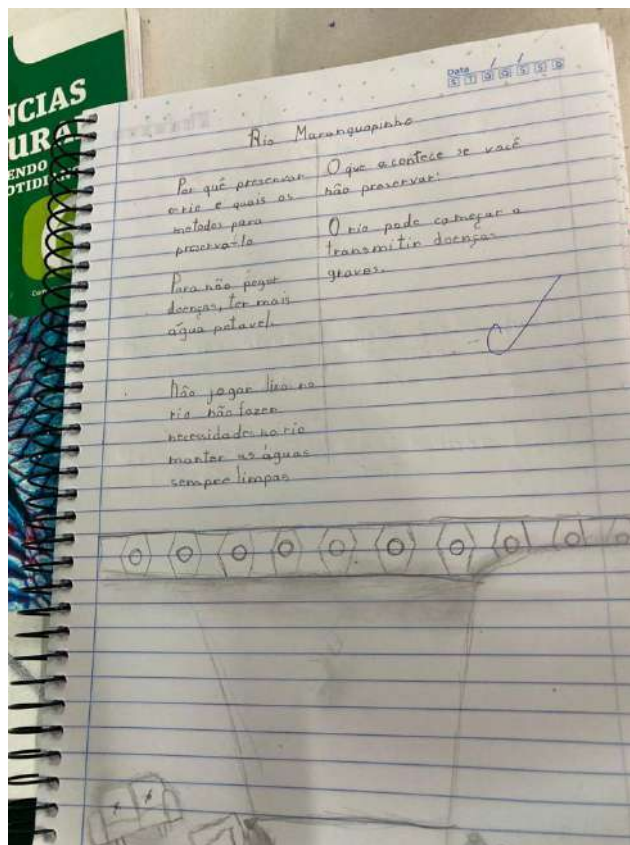 NCIAS
URA
ENDO
OTIDI
Data / /
S T Q Q S S D
Rio Maranguapinho
Por quê preservar
o rio e quais os
metodos para
preserva-lo
Para não pegar
doenças, ter mais
água potavel.
Não jogar lixo no
rio não fazer
necessidade no rio
manter as águas
sempre limpas
O que acontece se você
não preservar:
O rio pode começar a
transmitir doenças
graves.